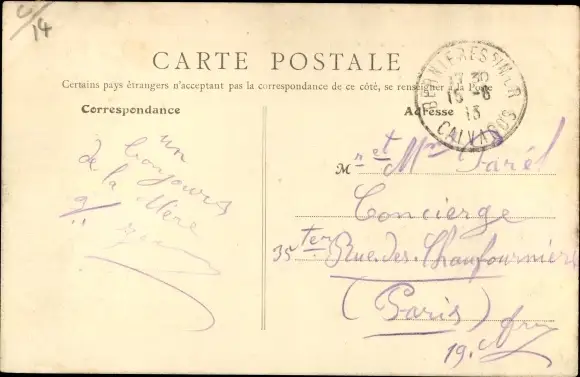 C/14
CARTE POSTALE
Certains pays étrangers n'acceptant pas la correspondance de ce côté, se renseigner à la Poste
Correspondance
Adresse
BERNIERES S/MER
17 30
15 -8
13
CALVADOS
un
bonjour
de la Mère
Mr et Mme Farél
Concierge
35 ter Rue des Chaufourniers
(Paris)
19.